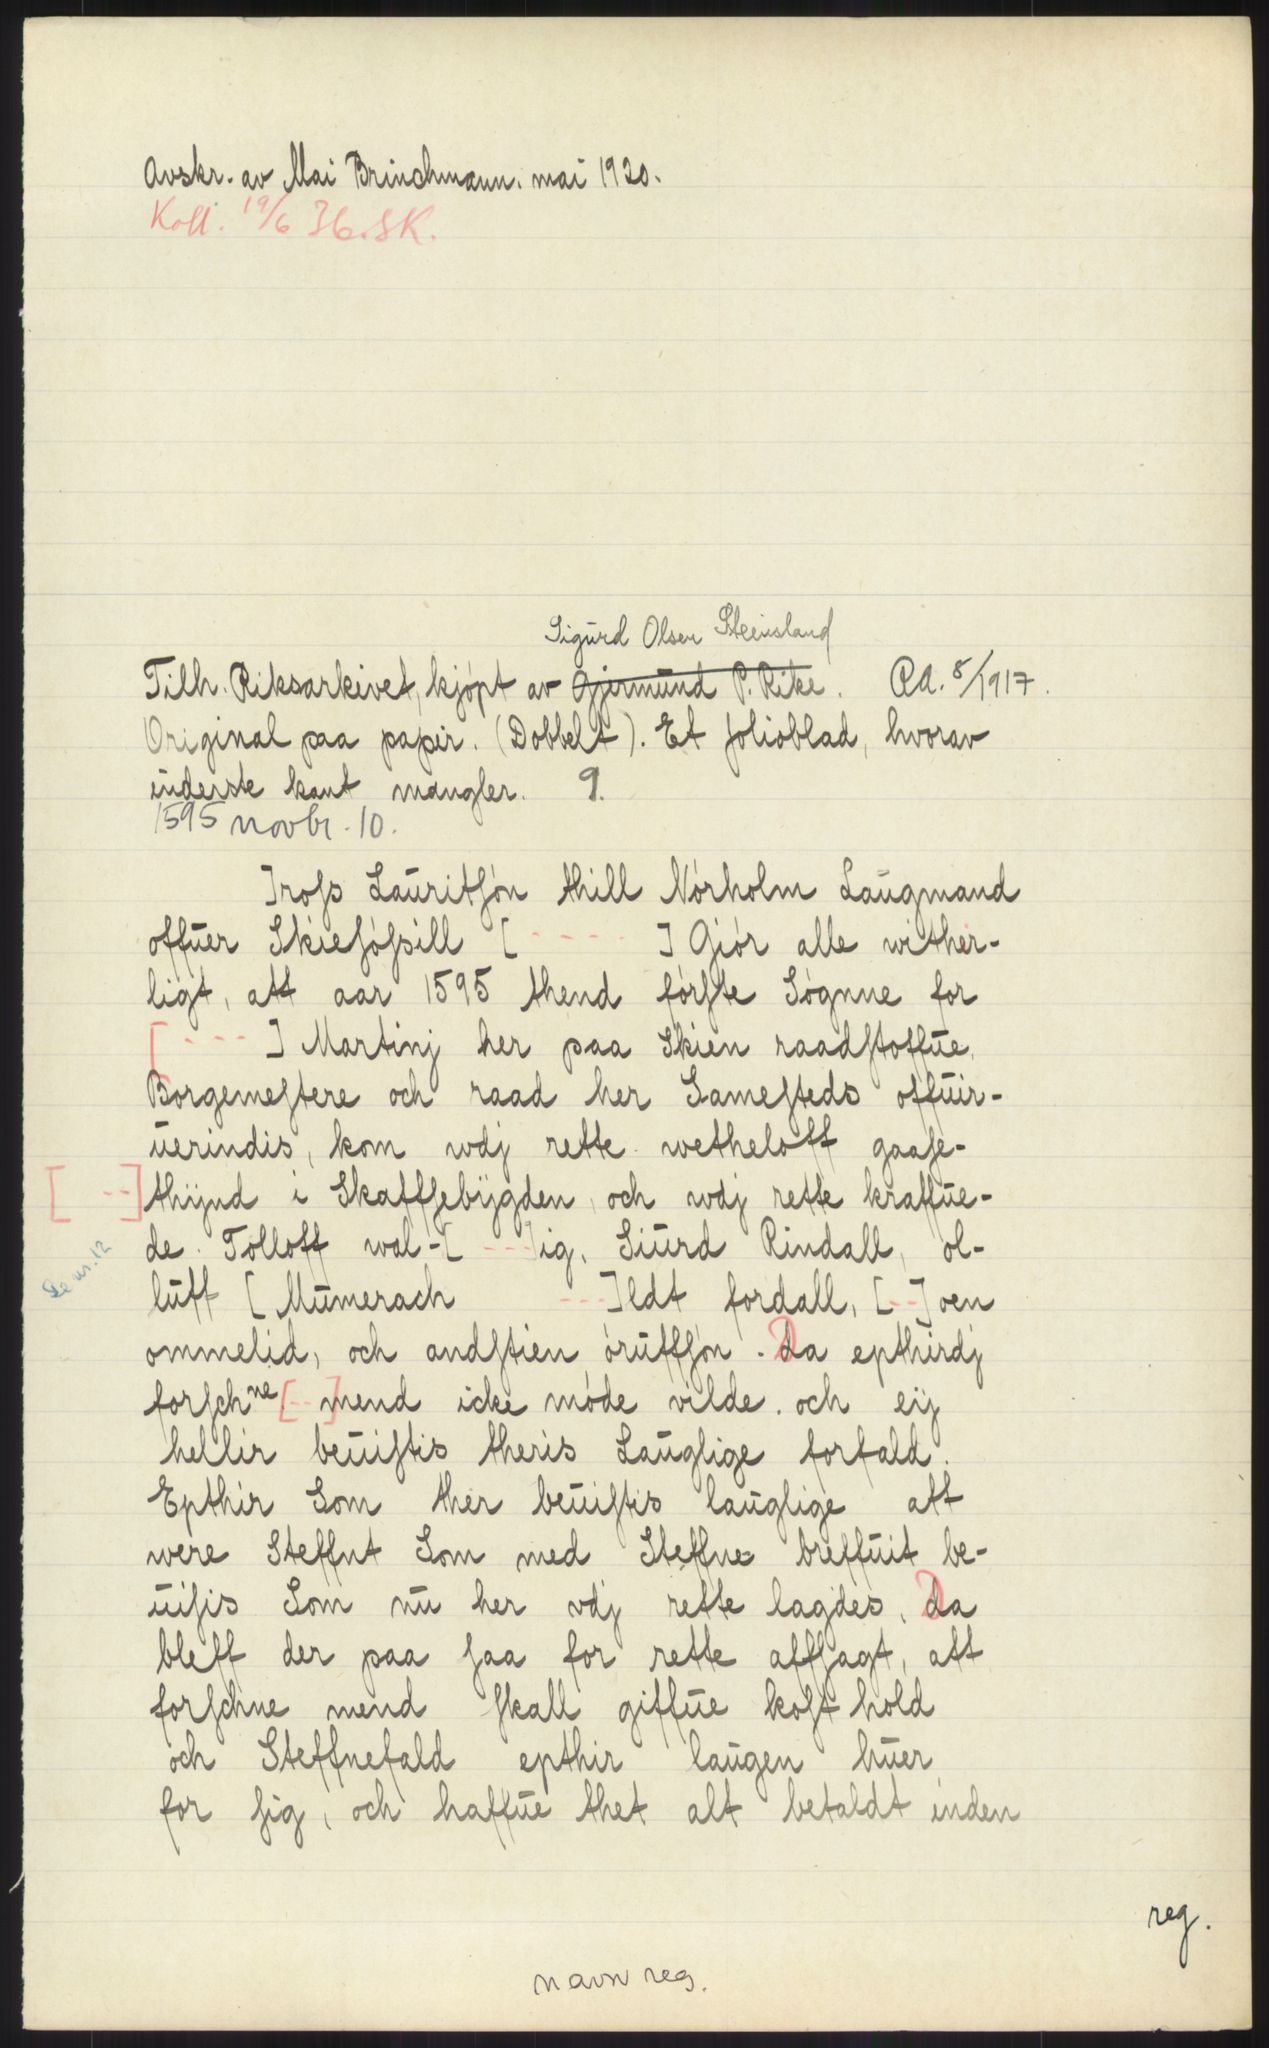 Avskr. av Mai Brinchmann. mai 1920.
Koll. 19/6 36. SK.
Sigurd Olsen Steinsland
Tilh. Riksarkivet, kjøpt av Gjermund P. Rike. PA. 8/1917.
Original paa papir. (Dobbelt). Et folioblad, hvorav
inderste kant mangler. 9.
1595 novbr. 10.
]roſs Lauritſøn thill Nørholm Laugmand
offuer Skieſøſsill [ - - - - - ] Giør alle wither-
ligt, att aar 1595 thend førſte Søgnne for
[ - - - - ] Martinj her paa Skien raadſtoffue,
Borgemeſtere och raad her Sameſteds offuir-
uerindis, kom wdj rette wetheloff gaaſe-
[ - - ] thijnd i Skaffſebijgden, och wdj rette kraffue-
de. Tolloff wal-[ - - - ]ig, Siurd Rindall, ol-
Se nr. 12
luff [ Mumerach - - - ]ldt fordall, [ - - ] oen
ommelid, och andſtien øruffſøn. Da epthirdj
forſchne [ - - ] mend icke møde vilde. och eij
hellir beuiſtis theris Lauglige forfald.
Epthir Som ther beuiſtis lauglige att
were Steffnt Som med Steffne breffuit be-
uiſis Som nu her vdj rette lagdes, Da
bleff der paa ſaa for rette affſagt, att
forſchne mend ſkall giffue koſt hold
och Steffnefald epthir laugen huer
for ſig, och haffue thet alt betaldt inden
reg.
navn reg.